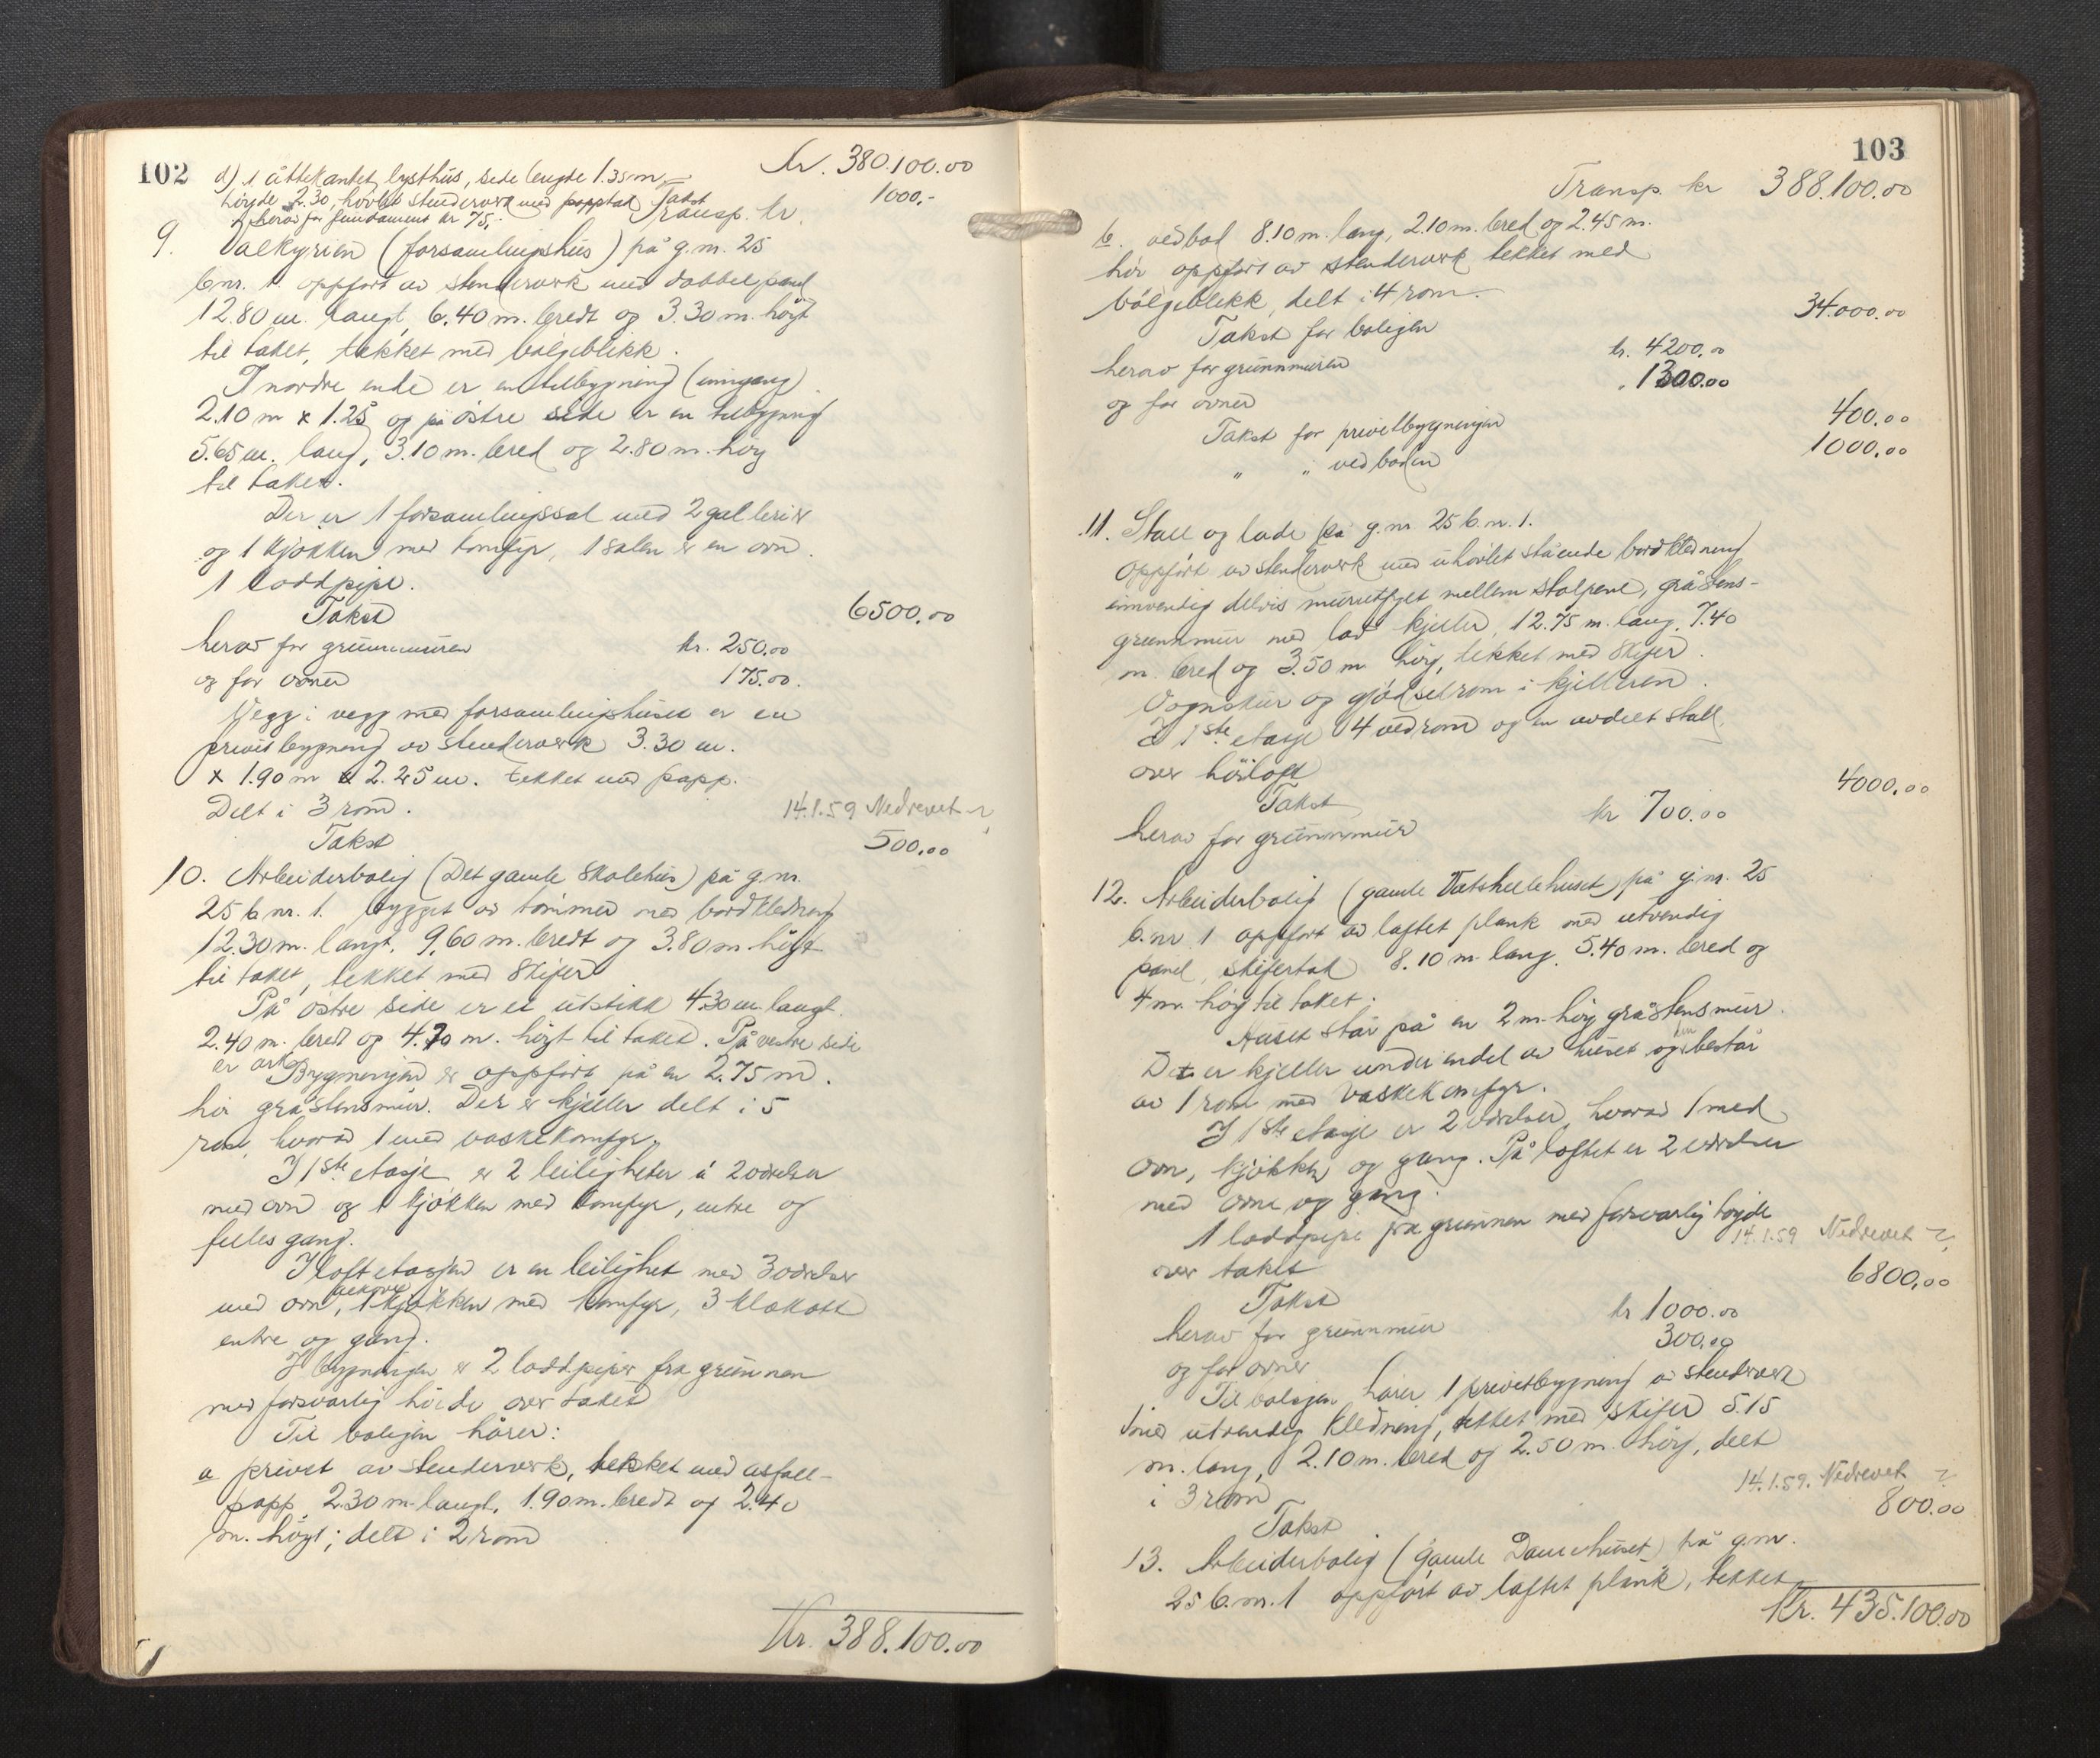 102
d) 1 åttekantet lysthus, side lengde 1.35 m,
høyde 2.30, høvlet stenderverk med papptak Takst 1000,-
herav for fundament kr 75,-
Kr. 380.100.00
Transp. kr.
9. Valkyrien (forsamlingshus) på g.nr. 25
b.nr. 1 oppført av stenderverk med dobbel panel
12.80 m. langt, 6.40 m. bredt og 3.30 m. høgt
til taket, tekket med bølgeblikk.
I nordre ende er en tilbygning (inngang)
2.10 m x 1.25 og på østre side er en tilbygning
5.65 m. lang, 3.10 m. bred og 2.80 m. høg
til taket.
Der er 1 forsamlingssal med 2 gallerier
og 1 kjøkken med komfyr, I salen er en ovn.
1 loddpipe.
Takst 6500.00
herav for grunnmuren kr. 250.00
og for ovner 175.00.
Vegg i vegg med forsamlingshuset er en
privetbygning av stenderverk 3.30 m.
x 1.90 m x 2.25 m. tekket med papp.
Delt i 3 rom.
14.1.59 Nedrevet
Takst 500.00
10. Arbeiderbolig (Det gamle skolehus) på g.nr.
25 b.nr. 1. bygget av tømmer med bordkledning
12.30 m. langt, 9,60 m. bredt og 3.80 m. høgt
til taket, tekket med skifer
På østre side er et utstikk 4.30 m. langt.
2.40 m. bredt og 4.70 m. høgt til taket. På vestre side
er ark
Bygningen er oppført på en 2.75 m.
høi gråstensmur. Der er kjeller delt i 5
rom, hvorav 1 med vaskekomfyr.
I 1ste etasje er 2 leiligheter á 2 værelser
med ovn og 1 kjøkken med komfyr, entre og
felles gang.
I loftetasjen er en leilighet med 3 værelser
med ovn, 1 kjøkken med komfyr, 3 klokott
entre og gang.
I bygningen er 2 loddpiper fra grunnen
med forsvarlig høide over taket
Til boligen hører:
a privet av stenderverk, tekket med asfalt-
papp 2.30 m. langt, 1.90 m. bredt og 2.40
m. høgt; delt i 2 rom
Kr. 388.100.00
103
Transp. kr 388.100.00
b. vedbod 8.10 m. lang, 2.10 m. bred og 2.45 m.
høi oppført av stenderverk tekket med
bølgeblikk, delt i 4 rom.
Takst for boligen 34.000.00
herav for grunnmuren kr. 4200.00
og for ovner " 1300.00
Takst for privetbygningen 400.00
" " vedboden 1000.00
11. Stall og lade på g.nr 25 b.nr. 1.
Oppført av stenderverk med uhøvlet stående bordkledning
innvendig delvis murutfyllet mellem stolpene, gråstens-
grunnmur med lav kjeller, 12.75 m. lang, 7.40
m. bred og 3.50 m. høg, tekket med skifer.
Vognskur og gjødselrom i kjelleren.
I 1ste etasje 4 vedrom og en avdelt stall,
over høiloft
Takst 4000.00
herav for grunnmur kr 700.00
12. Arbeiderbolig (gamle Tatshellehuset) på g.nr. 25
b.nr. 1 oppført av laftet plank med utvendig
panel, skifertak 8.10 m. lang, 5.40 m. bred og
4 m. høg til taket.
Huset står på en 2 m. høg gråstensmur.
Det er kjeller under endel av huset og består
av 1 rom med vaskekomfyr.
I 1ste etasje er 2 værelser, hvorav 1 med
ovn, kjøkken og gang. På loftet er 2 værelser
med ovn og gang.
1 loddpipe fra grunnen med forsvarlig høyde
over taket
14.1.59 Nedrevet
Takst 6800,00
herav for grunnmur kr 1000.00
og for ovner 300.00
Til boligen hører 1 privetbygning av stenderverk
med utvendig kledning, tekket med skifer 5.15
m. lang, 2.10 m. bred og 2.50 m. høg, delt
i 3 rom
14.1.59. Nedrevet
Takst 800.00
13. Arbeiderbolig (gamle Damehuset) på g.nr.
25 b.nr. 1 oppført av laftet plank, tekket
Kr. 435.100.00